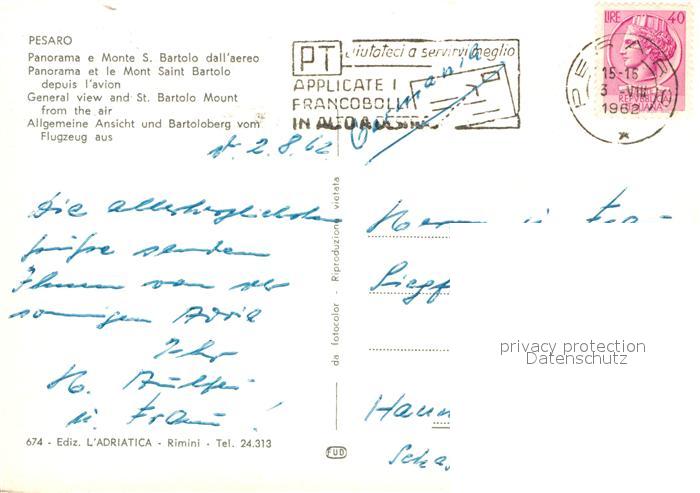 PESARO
Panorama e Monte S. Bartolo dall'aereo
Panorama et le Mont Saint Bartolo
depuis l'avion
General view and St. Bartolo Mount
from the air
Allgemeine Ansicht und Bartoloberg vom
Flugzeug aus
PT
aiutateci a servirvi meglio
APPLICATE I
FRANCOBOLLI
IN ALTO A DESTRA
Germania
LIRE 40
PESARO
15-15
3 VIII
1962
2.8.62
Die allerherzlichsten
Grüße senden
Ihnen von der
sonnigen Adria
Ihr
H.
u. Frau!
Herrn u. Frau
Siegf
Hann
da fotocolor - Riproduzione vietata
FUD
674 - Ediz. L'ADRIATICA - Rimini - Tel. 24.313
privacy protection
Datenschutz